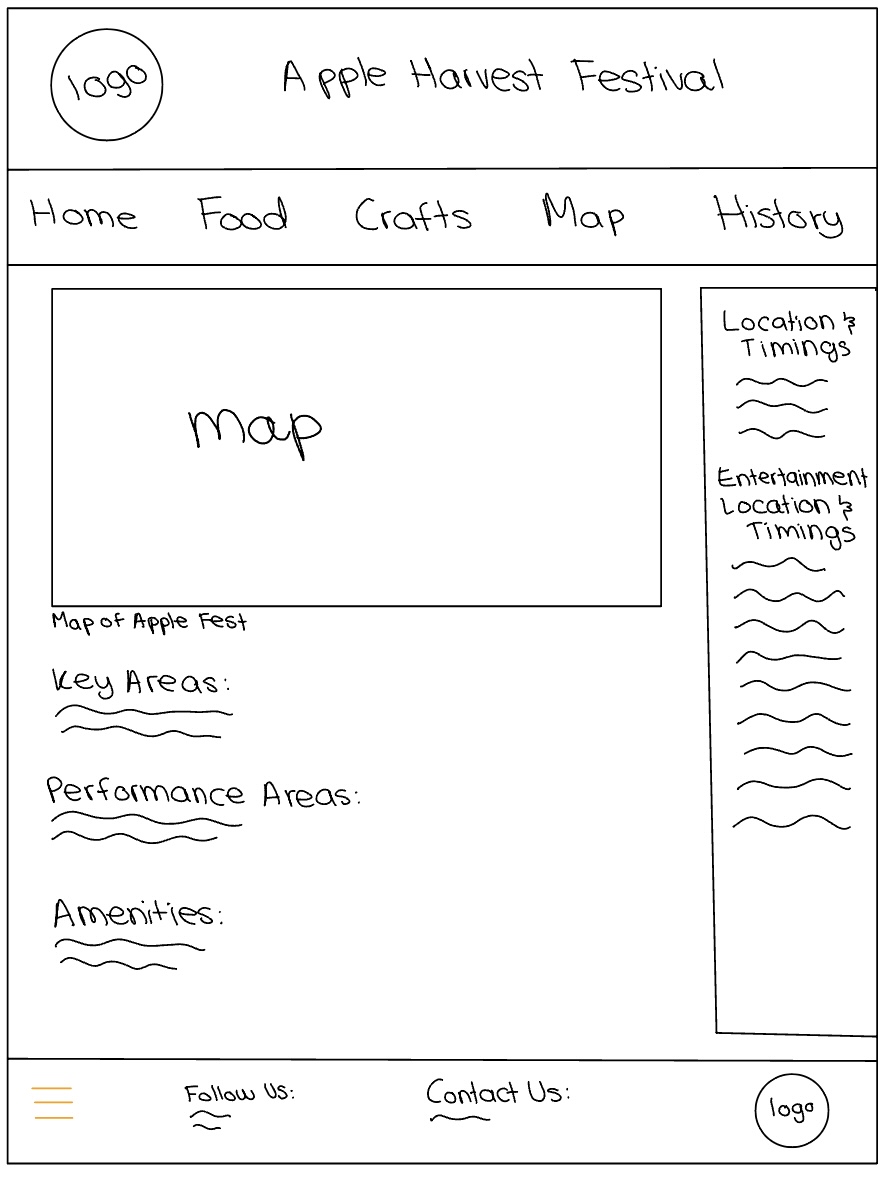 logo
Apple Harvest Festival
Home Food Crafts Map History
Map
Map of Apple Fest
Key Areas:
Performance Areas:
Amenities:
Location &
Timings
Entertainment
Location &
Timings
Follow Us:
Contact Us:
logo